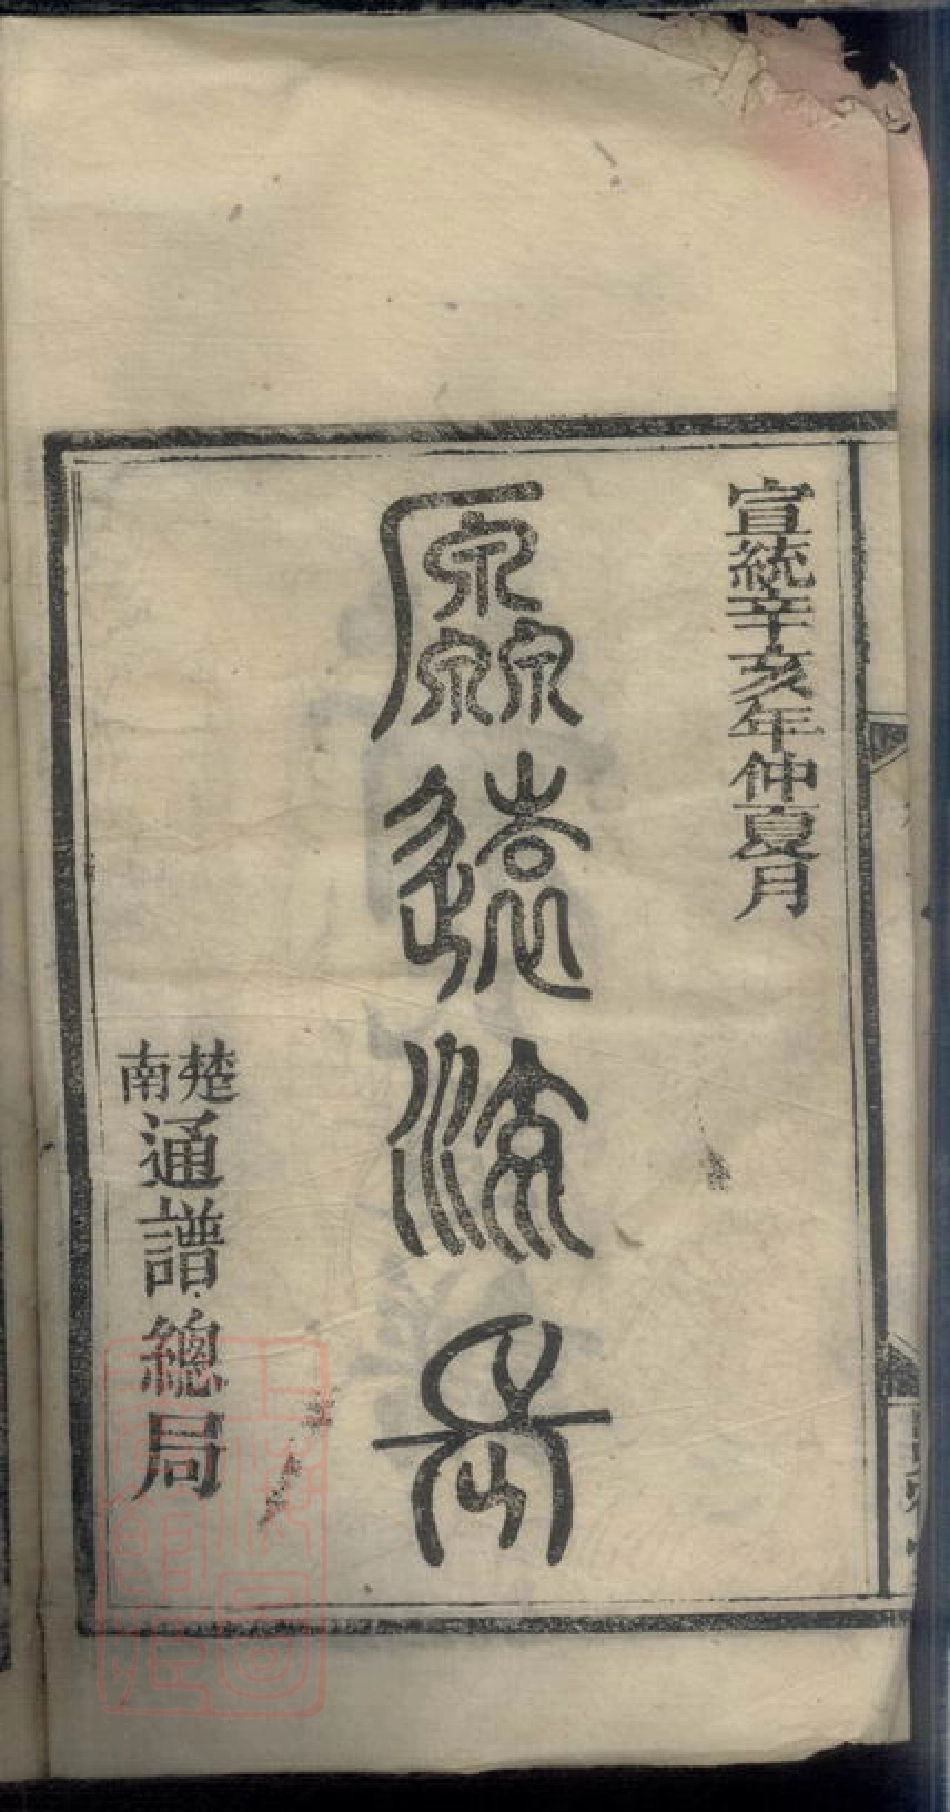 宣統辛亥年仲夏月
厵遠流長
楚南通譜總局